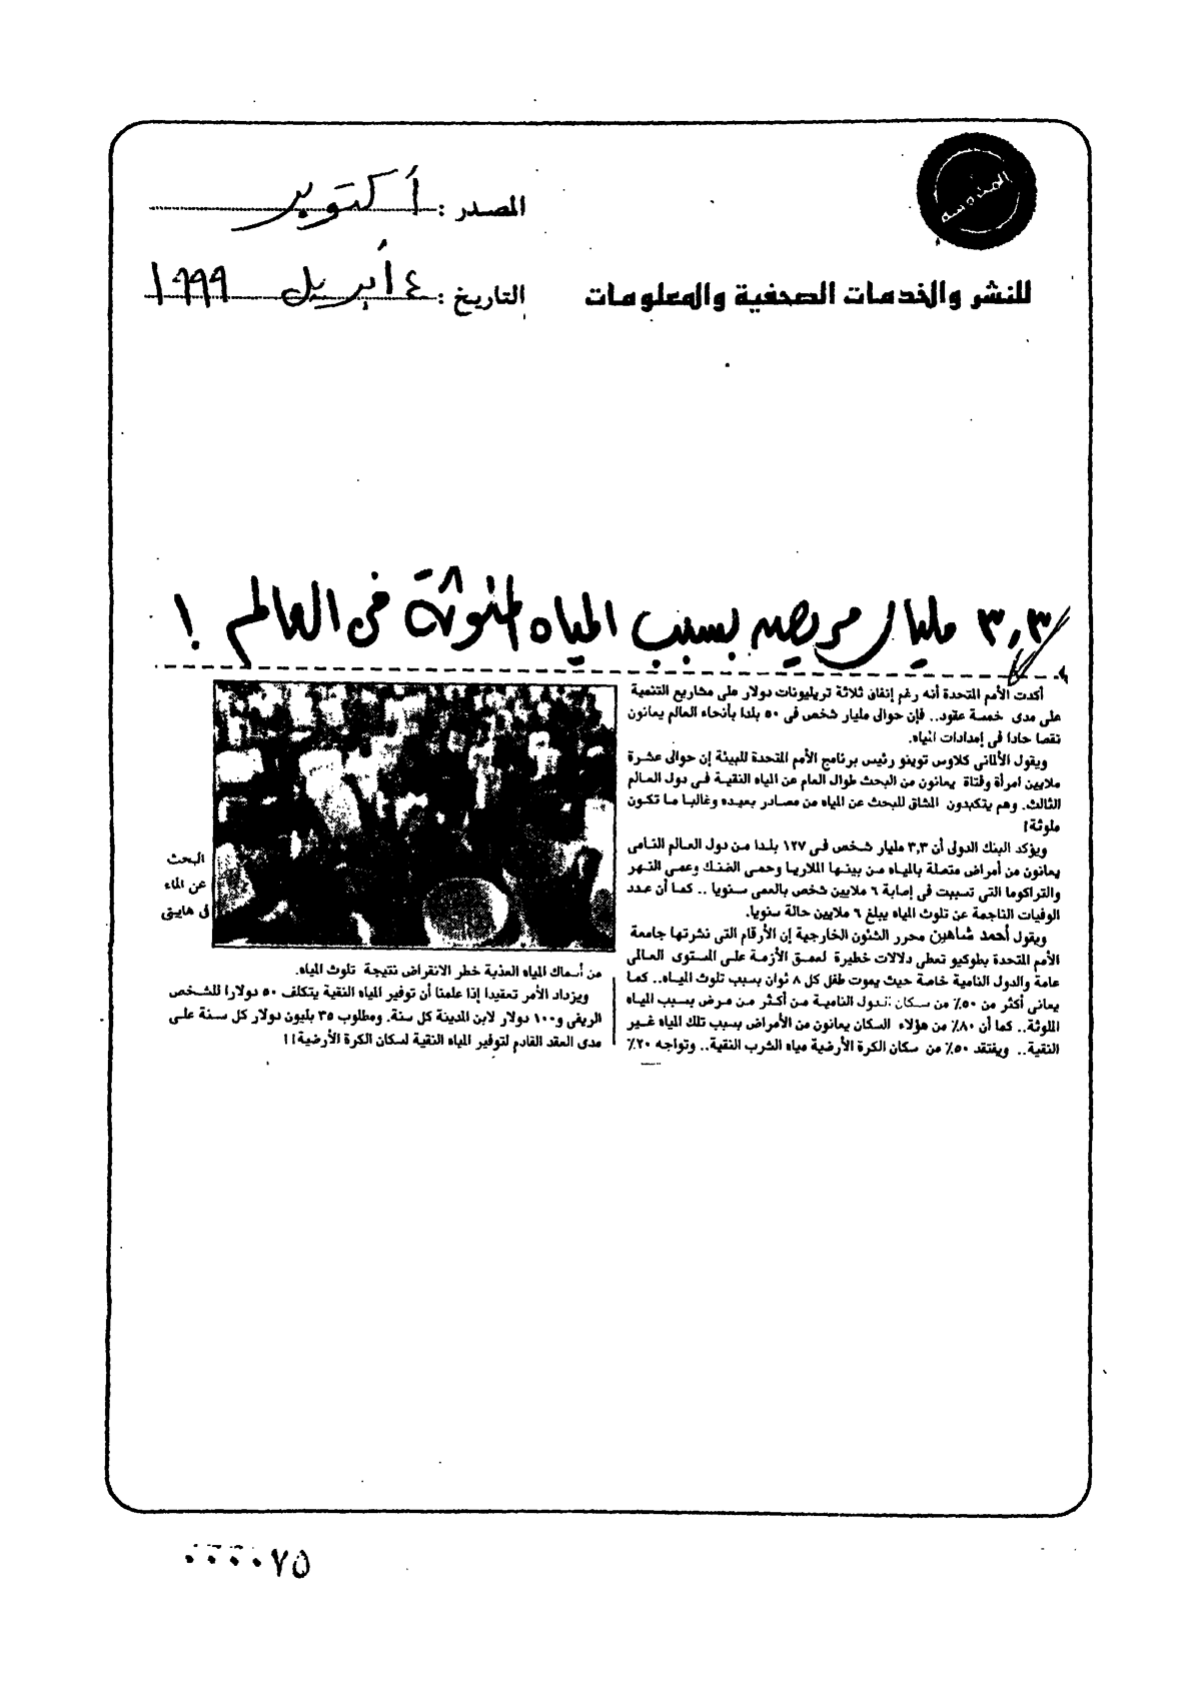 المحروسة
للنشر والخدمات الصحفية والمعلومات
المصدر : أكتوبر
التاريخ : ٤ أبريل ١٩٩٩
٣,٣ مليار مريض بسبب المياه الملوثة فى العالم !
أكدت الأمم المتحدة أنه رغم إنفاق ثلاثة تريليونات دولار على مشاريع التنمية
على مدى خمسة عقود.. فإن حوالى مليار شخص فى ٥٠ بلدا بأنحاء العالم يعانون
نقصا حادا فى إمدادات المياه.
ويقول الألمانى كلاوس توينو رئيس برنامج الأمم المتحدة للبيئة إن حوالى عشرة
ملايين امرأة وفتاة يعانون من البحث طوال العام عن المياه النقية فى دول العالم
الثالث. وهم يتكبدون المشاق للبحث عن المياه من مصادر بعيده وغالبا ما تكون
ملوثة!
ويؤكد البنك الدولى أن ٣,٣ مليار شخص فى ١٢٧ بلدا من دول العالم النامى
يعانون من أمراض متصلة بالمياه من بينها الملاريا وحمى الضنك وعمى النهر
والتراكوما التى تسببت فى إصابة ٦ ملايين شخص بالعمى سنويا .. كما أن عدد
الوفيات الناجمة عن تلوث المياه يبلغ ٦ ملايين حالة سنويا.
ويقول أحمد شاهين محرر الشئون الخارجية إن الأرقام التى نشرتها جامعة
الأمم المتحدة بطوكيو تعطى دلالات خطيرة لعمق الأزمة على المستوى العالمى
عامة والدول النامية خاصة حيث يموت طفل كل ٨ ثوان بسبب تلوث المياه.. كما
يعانى أكثر من ٥٠٪ من سكان الدول النامية من أكثر من مرض بسبب المياه
الملوثة.. كما أن ٨٠٪ من هؤلاء السكان يعانون من الأمراض بسبب تلك المياه غير
النقية.. ويفتقد ٥٠٪ من سكان الكرة الأرضية مياه الشرب النقية.. وتواجه ٢٠٪
البحث
عن الماء
فى هايتى
من أسماك المياه العذبة خطر الانقراض نتيجة تلوث المياه.
ويزداد الأمر تعقيدا إذا علمنا أن توفير المياه النقية يتكلف ٥٠ دولارا للشخص
الريفى و١٠٠ دولار لابن المدينة كل سنة. ومطلوب ٣٥ بليون دولار كل سنة على
مدى العقد القادم لتوفير المياه النقية لسكان الكرة الأرضية!!
٠٠٠٠٧٥